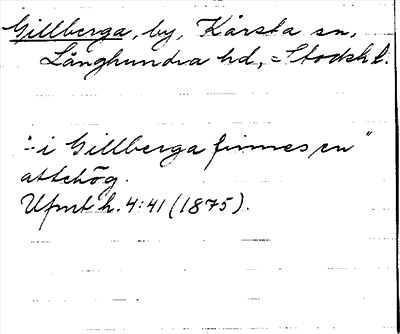 Gillberga, by, Kårsta sn,
Långhundra hd, Stockh l.
"- i Gillberga finnes en"
attehög.
Ufmt h. 4:41 (1875).